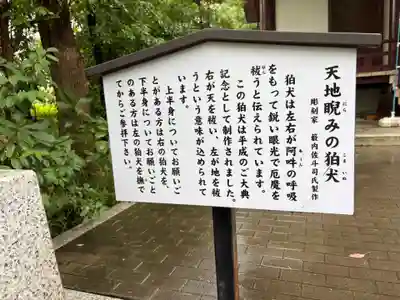 天地睨みの狛犬
にら
こま
いぬ
彫刻家 籔内佐斗司氏製作
狛犬は左右が阿吽の呼吸
あうん
をもって鋭い眼光で厄魔を
祓うと伝えられています。
はら
この狛犬は平成のご大典
記念として制作されました。
右が天を祓い、左が地を祓
うという意味が込められて
います。
上半身についてお願いご
とがある方は右の狛犬を、
下半身についてお願いごと
のある方は左の狛犬を撫で
てからご参拝下さい。